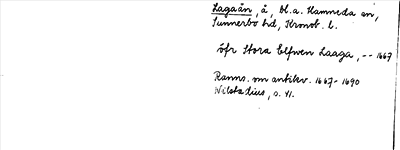 Lagaån, å, bl.a. Hamneda sn,
Sunnerbo hd, Kronob. l.
öfr Stora Elfwen Laaga, -- 1667
Ranns. om antikv. 1667-1690
Nilstadius, s. 41.